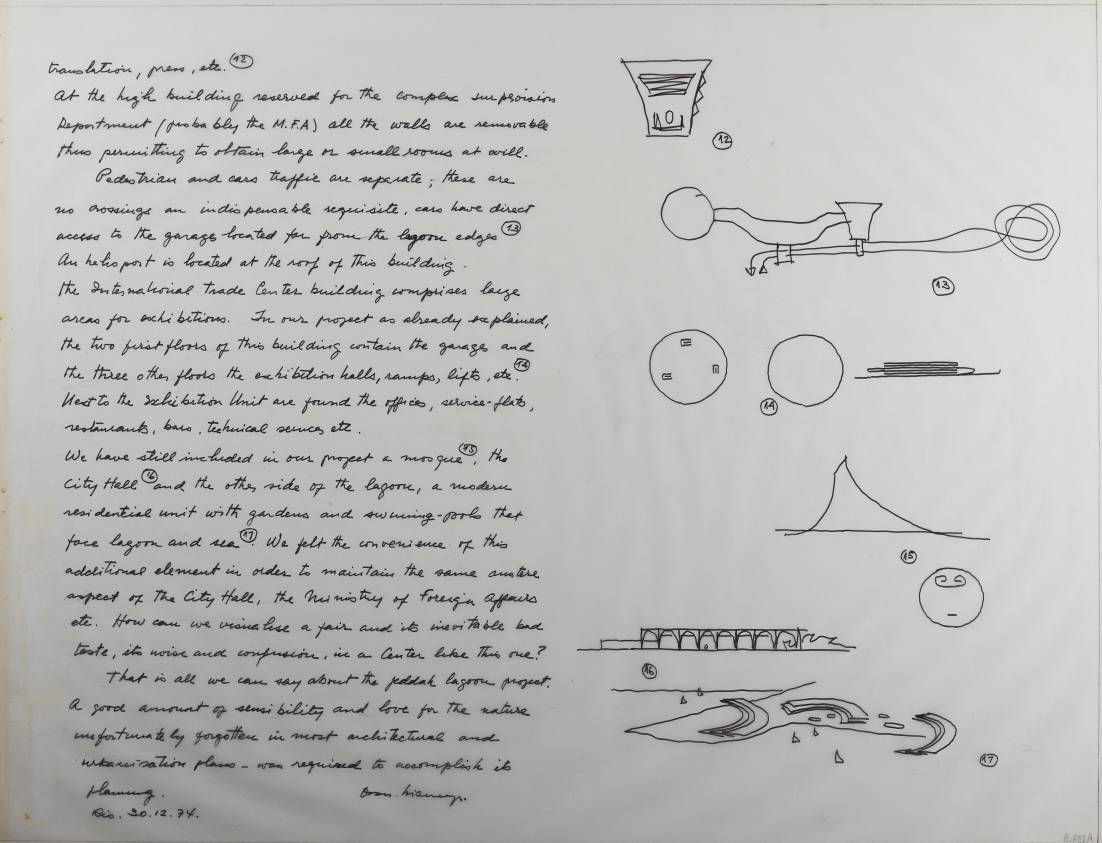 translation, press, etc. 12
At the high building reserved for the complex surprvision
Department (probably the M.F.A) all the walls are removable
thus permitting to obtain large or small rooms at will.
Pedestrian and cars traffic are separate; these are
no crossings an indispensable requisite, cars have direct
access to the garages located far from the lagoon edges 13
An heliport is located at the roof of this building.
the International Trade Center building comprises large
areas for exhibitions. In our project as already explained,
the two first floors of this building contain the garages and
the three other floors the exhibition halls, ramps, lifts, etc. 14
Next to the Exhibition Unit are found the offices, service-flats,
restaurants, bars, technical services etc.
We have still included in our project a mosque 15, the
City Hall 16 and the other side of the lagoon, a modern
residential unit with gardens and swiming-pools that
face lagoon and sea 17. We felt the convenience of this
additional element in order to maintain the same austere
aspect of the City Hall, the Ministry of Foreign Affairs
etc. How can we visualise a fair and its inevitable bad
taste, its noise and confusion, in a Center like this one?
That is all we can say about the jeddah lagoon project.
A good amount of sensibility and love for the nature
unfortunately forgotten in most architectural and
urbanisation plans - was required to accomplish its
planning.
Rio. 30.12.74.
12
13
14
15
16
17